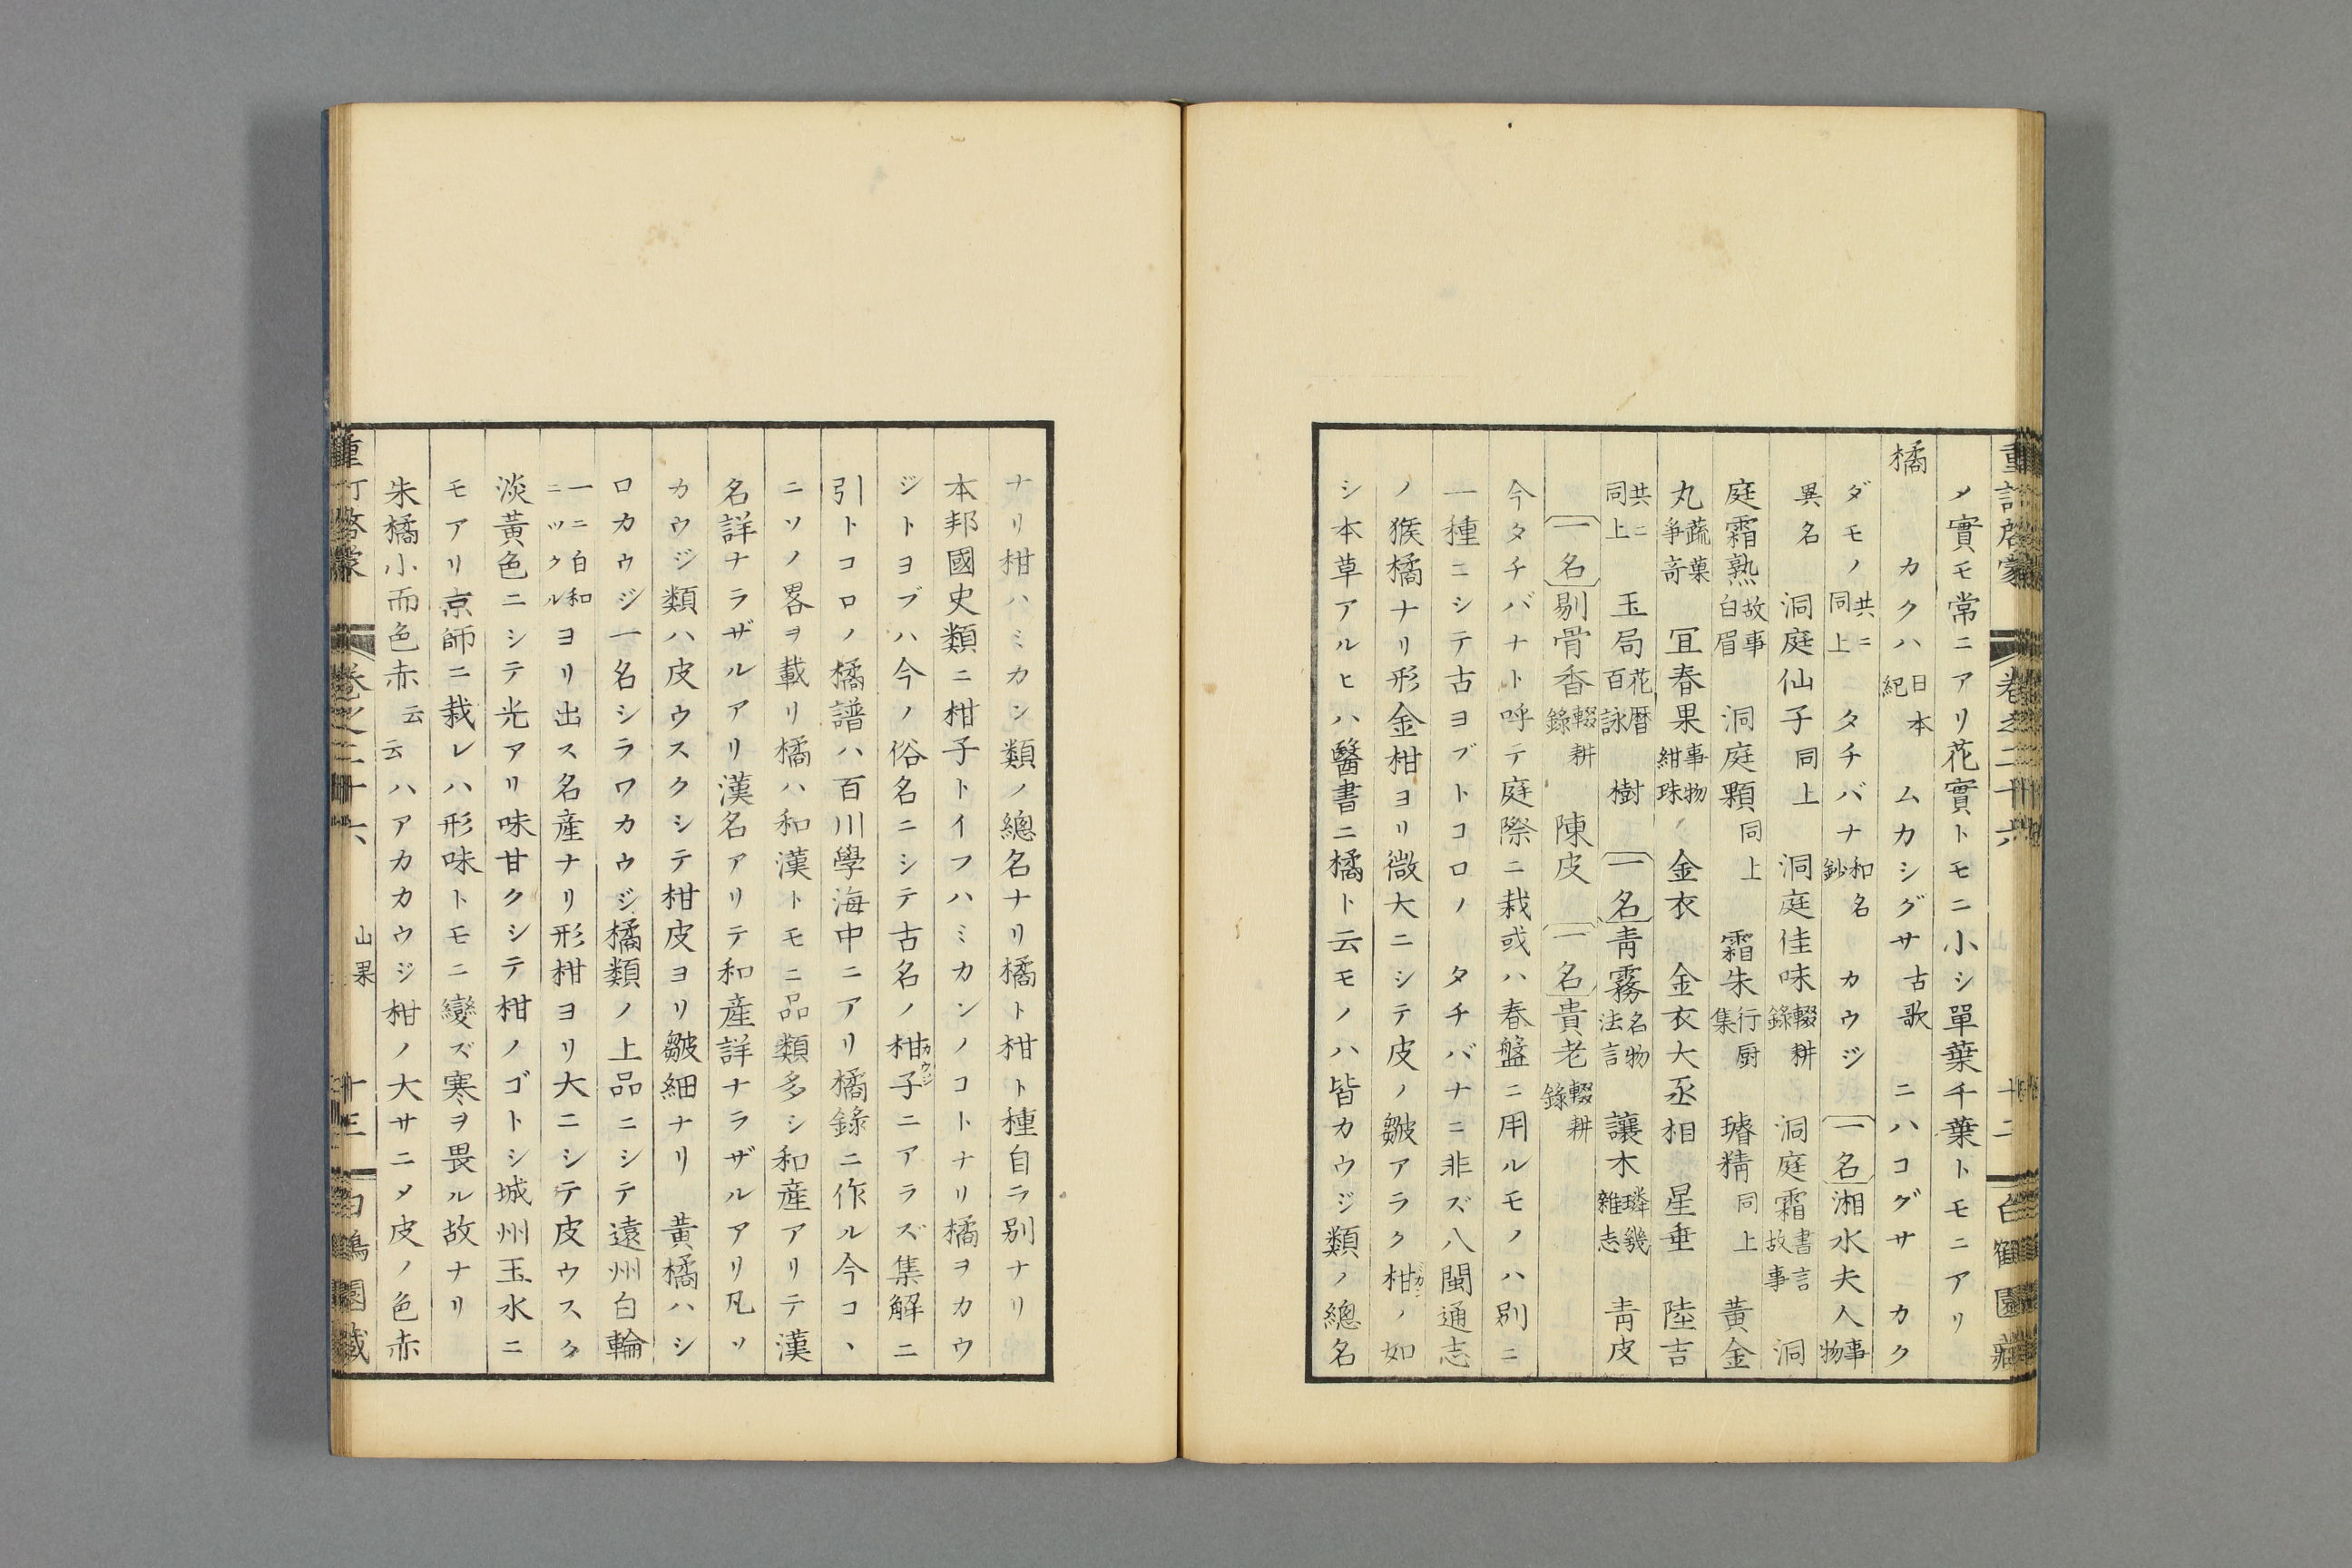 重訂啓蒙 卷之二十六 十二
メ實モ常ニアリ花實トモニ小シ單葉千葉トモニアリ
橘 カクハ 日本紀 ムカシグサ 古歌 ニハコグサ カク
ダモノ 共ニ同上 タチバナ 和名鈔 カウジ 一名湘水夫人 事物
異名 洞庭仙子 同上 洞庭佳味 輟耕錄 洞庭霜 書言故事 洞
庭霜熟 故事白眉 洞庭顆 同上 霜朱 行厨集 璿精 同上 黃金
丸 蔬菓爭奇 冝春果 事物紺珠 金衣 金衣大丞相 星垂 陸吉
共ニ同上 玉局 花暦百詠 樹 一名青霧 名物法言 讓木 璘畿雜志 青皮
一名剔骨香 輟耕錄 陳皮 一名貴老 輟耕錄
今タチバナト呼テ庭際ニ栽或ハ春盤ニ用ルモノハ別ニ
一種ニシテ古ヨブトコロノタチバナニ非ズ八閩通志
ノ猴橘ナリ形金柑ヨリ微大ニシテ皮ノ皺アラク柑ノ如
シ本草アルヒハ醫書ニ橘ト云モノハ皆カウジ類ノ總名
ナリ柑ハミカン類ノ總名ナリ橘ト柑ト種自ラ別ナリ
本邦國史類ニ柑子トイフハミカンノコトナリ橘ヲカウ
ジトヨブハ今ノ俗名ニシテ古名ノ柑子カウジニアラズ集解ニ
引トコロノ橘譜ハ百川學海中ニアリ橘錄ニ作ル今コヽ
ニソノ畧ヲ載リ橘ハ和漢トモニ品類多シ和産アリテ漢
名詳ナラザルアリ漢名アリテ和産詳ナラザルアリ凡ソ
カウジ類ハ皮ウスクシテ柑皮ヨリ皺細ナリ 黃橘ハシ
ロカウジ一名シラワカウジ橘類ノ上品ニシテ遠州白輪
一ニ白和ニツクルヨリ出ス名産ナリ形柑ヨリ大ニシテ皮ウスク
淡黃色ニシテ光アリ味甘クシテ柑ノゴトシ城州玉水ニ
モアリ京師ニ栽レハ形味トモニ變ズ寒ヲ畏ル故ナリ
朱橘小而色赤云云ハアカカウジ柑ノ大サニメ皮ノ色赤
卷之二十六 山果 十三